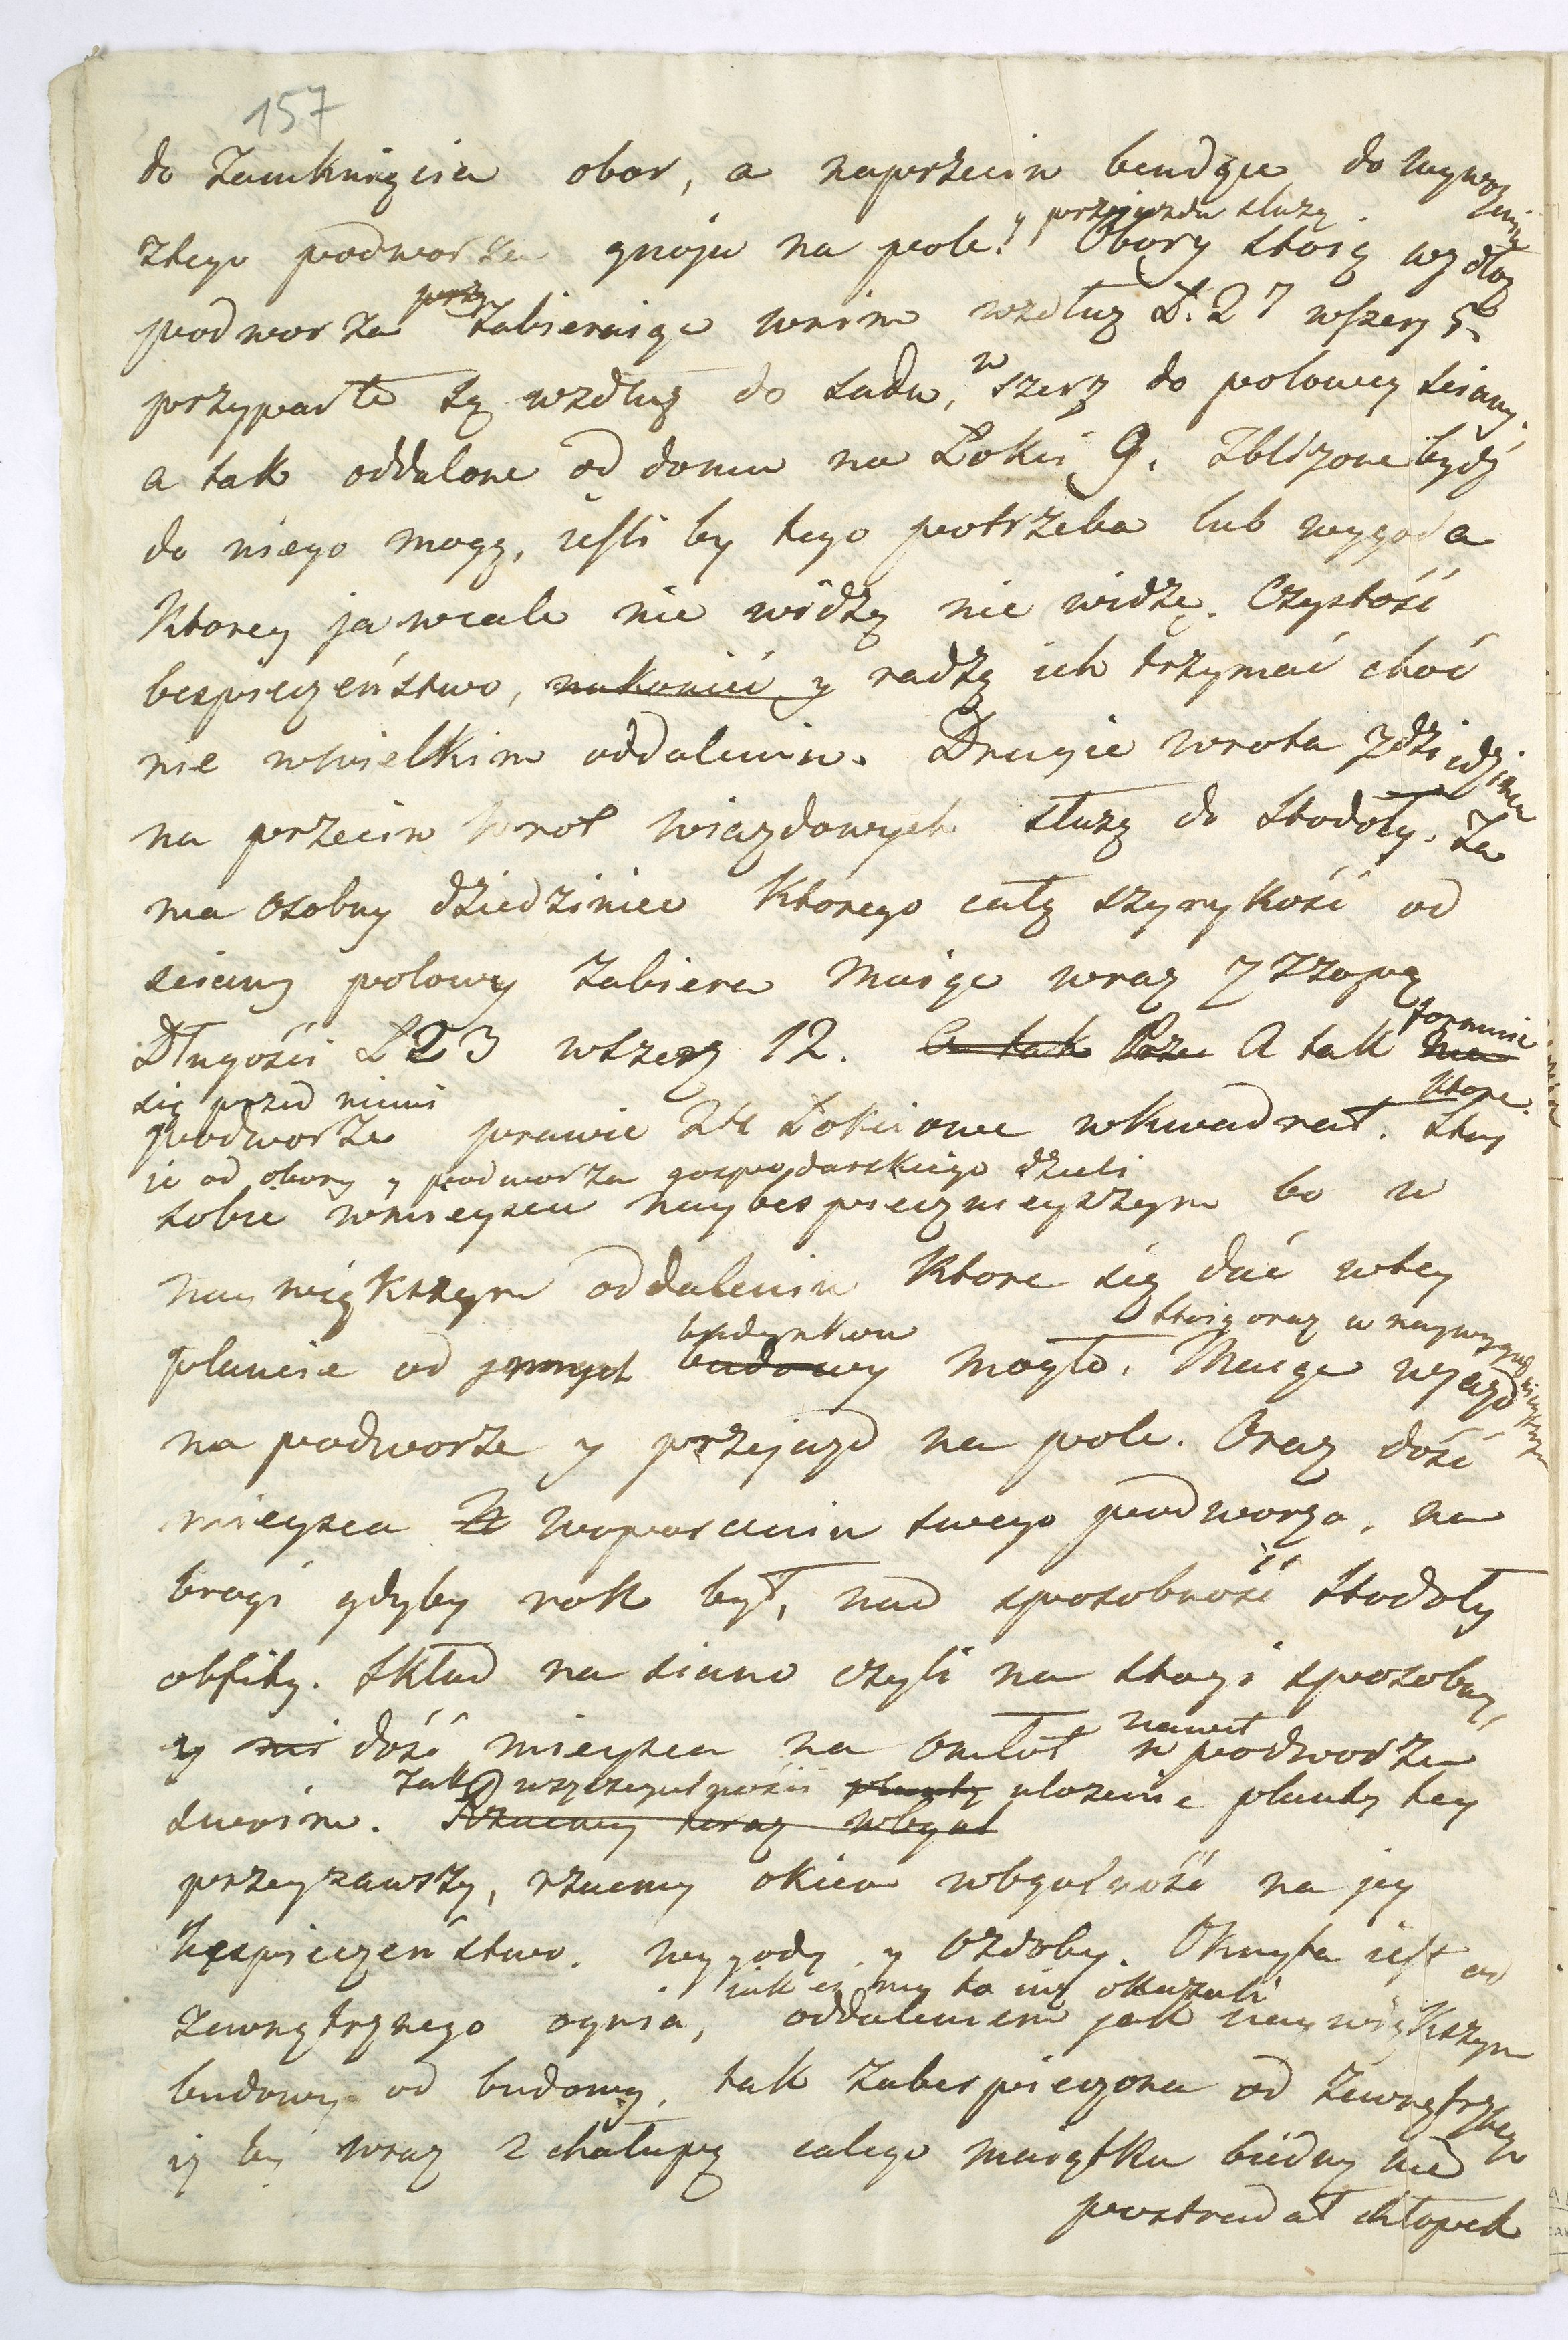 157
do Zamknięcia obor, a naprzeciw bendące do wywozenia
ztego podworza gnoju na pole. y przejazdu służą. Obory stoią wzdłuz
podworza zabieraiąc wnim wzdłuz Ł. 27 wszerz 5
przyparte są wzdłuż do sadu, w szerz do połowey sciany.
a tak oddalone od domu na Łokci 9. Zbliżone bydź
do niego mogą, ieśli by tego potrzeba lub wygoda
Ktorey ja wcale nie widzę nie widzę. Czystość
bespieczeństwo, nakonieć y radzę ich trzymać choć
nie wwielkim oddaleniu. Drugie wrota z dziedzinca
na przeciw wrot wiazdowych służą do Stodoły. Ta
ma osobny dziedziniec Ktorego całą szyrykość od
sciany polowy zabiera Maiąc wraz z Szopą
Długości Ł 23 wszerz 12. A tak Prze A tak formuie
się przed niemi
podworze prawie 24 Łokciowe wkwadrat. Ktore
ie od obory y podworza gospodarskiego dzieli Stoy
sobie wmieyscu naybespiecznieyszym bo w
naywiększym oddaleniu Ktore się dać wtey
plancie od innych budowy budynkow mogło. Stoią oraz w naywygodnieyszym Maiąc wjazd
na podworze y przejazd na pole. Oraz dość
mieysca w swego podworza, na
brogi gdyby rok był, nad sposobność Stodoły
obfity. Skład na siano czyli na stogi sposobny,
y dość mieysca na omłot nawet w podworzu
swoim. Rzucmy teraz wogul Tak wszczegulności planty ułozenie planty tey
przeyzawszy, rzucmy okiem wogulność na jey
bespieczeństwo, wygody y ozdoby. Okryta iest od
zewnętrznego ognia, jak eś my to iuz okazali oddaleniem jak naywiększym
budowy od budowy, tak zabespieczona od zewnętrznego
iż by wraz z chałupą całego maiątku biedny nie
postradał chłopek